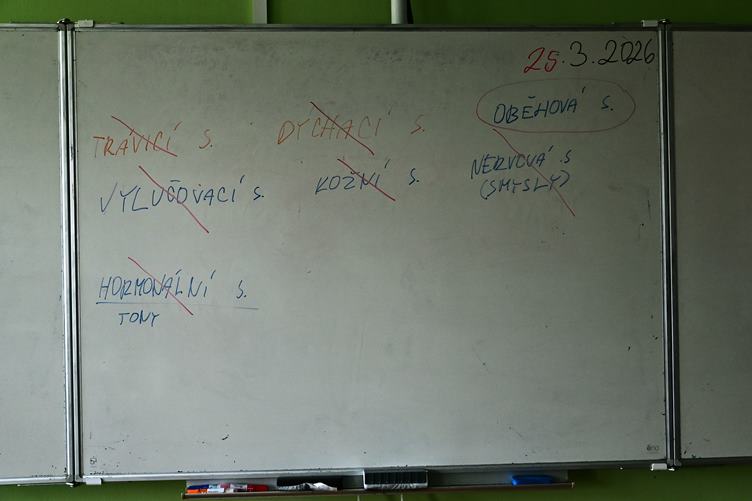 25.3.2026
TRÁVICÍ S. DÝCHACÍ S. OBĚHOVÁ S.
VYLUČOVACÍ S. KOŽNÍ S. NERVOVÁ S
(SMYSLY)
HORMONÁLNÍ S.
TONY